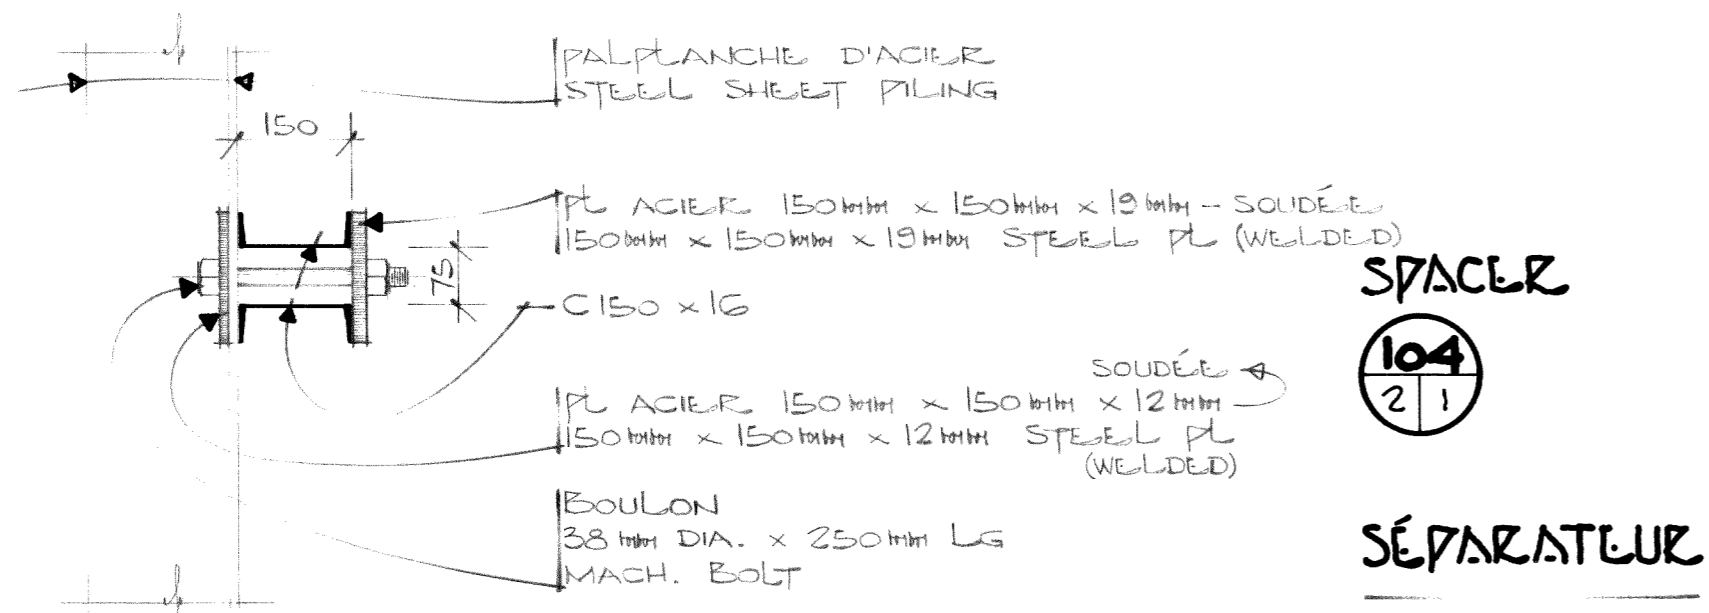 PALPLANCHE D'ACIER
STEEL SHEET PILING
150
PL ACIER 150mm x 150mm x 19mm - SOUDÉE
150mm x 150mm x 19mm STEEL PL (WELDED)
75
C150 x 16
SOUDÉE
PL ACIER 150mm x 150mm x 12mm
150mm x 150mm x 12mm STEEL PL
(WELDED)
BOULON
38mm DIA. x 250mm LG
MACH. BOLT
SPACER
104
2 1
SÉPARATEUR